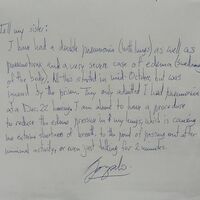 Tell my sister:
I have had a double pneumonia (both lungs) as well as
and a very severe case of edema (
of the body). All this started in mid-October but was
by the prison. They only admitted I had pneumonia
Dec. 22 I am about to have a procedure
to reduce the edema pressure in my lungs, which is causing
me extreme shortness of breath to the point of passing out after
minimal activity, or even just talking for 2 minutes.